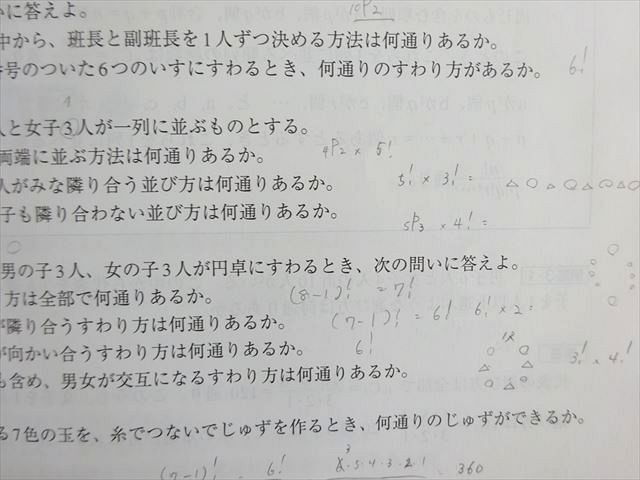 に答えよ。 10P2
中から、班長と副班長を1人ずつ決める方法は何通りあるか。
号のついた6つのいすにすわるとき、何通りのすわり方があるか。 6!
人と女子3人が一列に並ぶものとする。
両端に並ぶ方法は何通りあるか。 4P2 × 5!
人がみな隣り合う並び方は何通りあるか。 5! × 3! =
子も隣り合わない並び方は何通りあるか。 5P3 × 4! =
男の子3人、女の子3人が円卓にすわるとき、次の問いに答えよ。
方は全部で何通りあるか。 (8-1)! = 7!
が隣り合うすわり方は何通りあるか。 (7-1)! = 6! 6! × 2 =
が向かい合うすわり方は何通りあるか。 6!
も含め、男女が交互になるすわり方は何通りあるか。 3! × 4!
る7色の玉を、糸でつないでじゅずを作るとき、何通りのじゅずができるか。
(7-1)! 6! 6·5·4·3·2·1 = 360